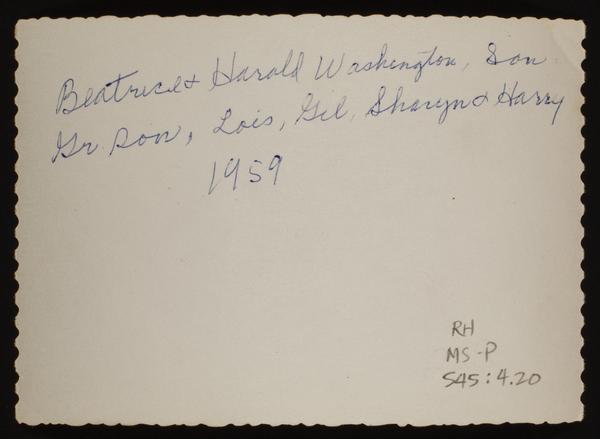 Beatrice & Harold Washington, Son
Gr. Son, Lois, Gil, Sharyn & Harry
1959
RH
MS-P
545:4.20